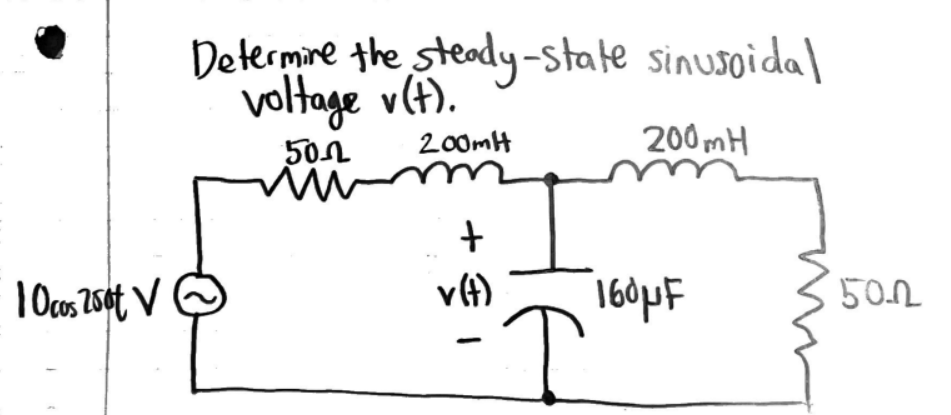 Determine the steady-state sinusoidal
voltage v(t).
50Ω 200mH 200mH
+
10cos250t V v(t) 160μF 50Ω
−